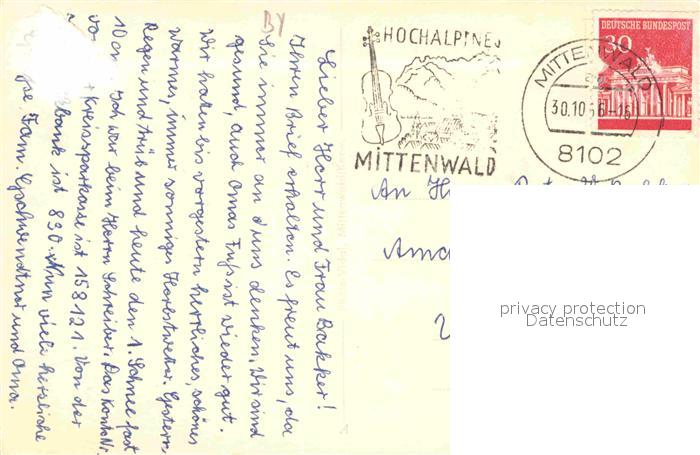 BY
HOCHALPINES
MITTENWALD
MITTENWALD
30.10.
8102
DEUTSCHE BUNDESPOST
30
Lieber Herr und Frau Bakker!
Ihren Brief erhalten. Es freut uns, da
Sie immer an uns denken. Wir sind
gesund, auch Omas Fuß ist wieder gut.
Wir hatten bis vorgestern herrliches, schönes
warmes, immer sonniges Herbstwetter. Gestern
Regen und trüb und heute den 1. Schnee fast
10 cm Ich war beim Herrn Schreiber. Das Konto Nr.
Kreissparkasse ist 158121. Von der
bank ist 830. Nun viele herzliche
Fam. Gschwendtner und Oma.
An
privacy protection
Datenschutz